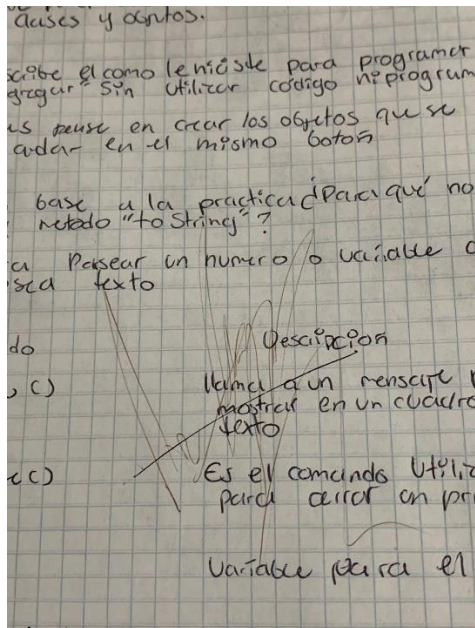 clases y objetos.
scribe el como le hiciste para programar
gregar" sin utilizar código ni program
es pense en crear los objetos que se
en el mismo boton
base a la practica ¿Para qué no
metodo "toString"?
a Parsear un numero o variable
sea texto
do Descripcion
, c) llama a un mensaje
mostrar en un cuadro
texto
(c) Es el comando utiliz
para cerrar un pr
Variable para el